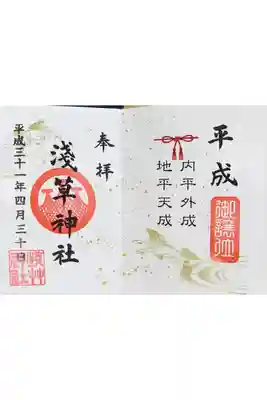 平成
御譲位
内平外成
地平天成
奉拝
淺草神社
平成三十一年四月三十日